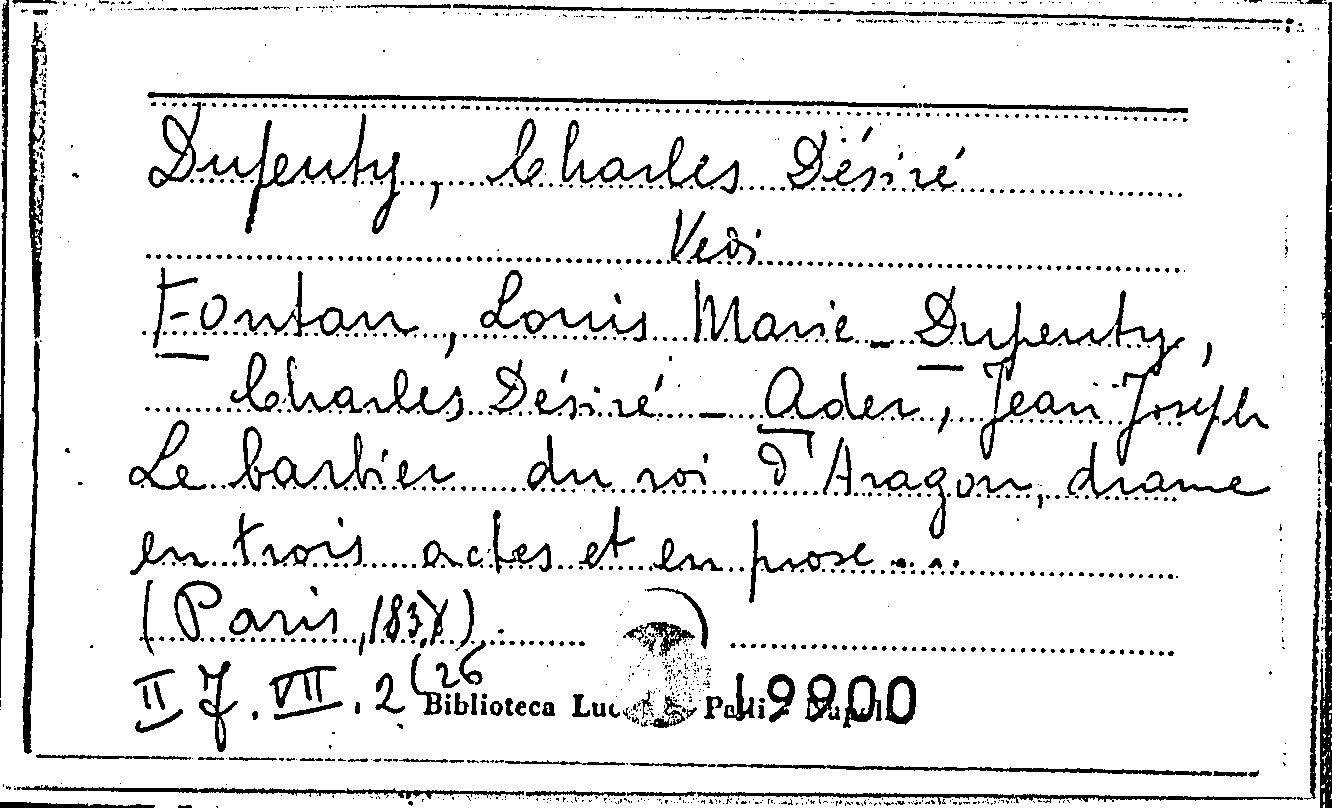 Dupeuty, Charles Désiré
Vedi
Fontan, Louis Marie - Dupeuty,
Charles Désiré - Ader, Jean Joseph
Le barbier du roi d'Aragon, drame
en trois actes et en prose...
(Paris, 183
II J. VII. 2 (26
Biblioteca 19900